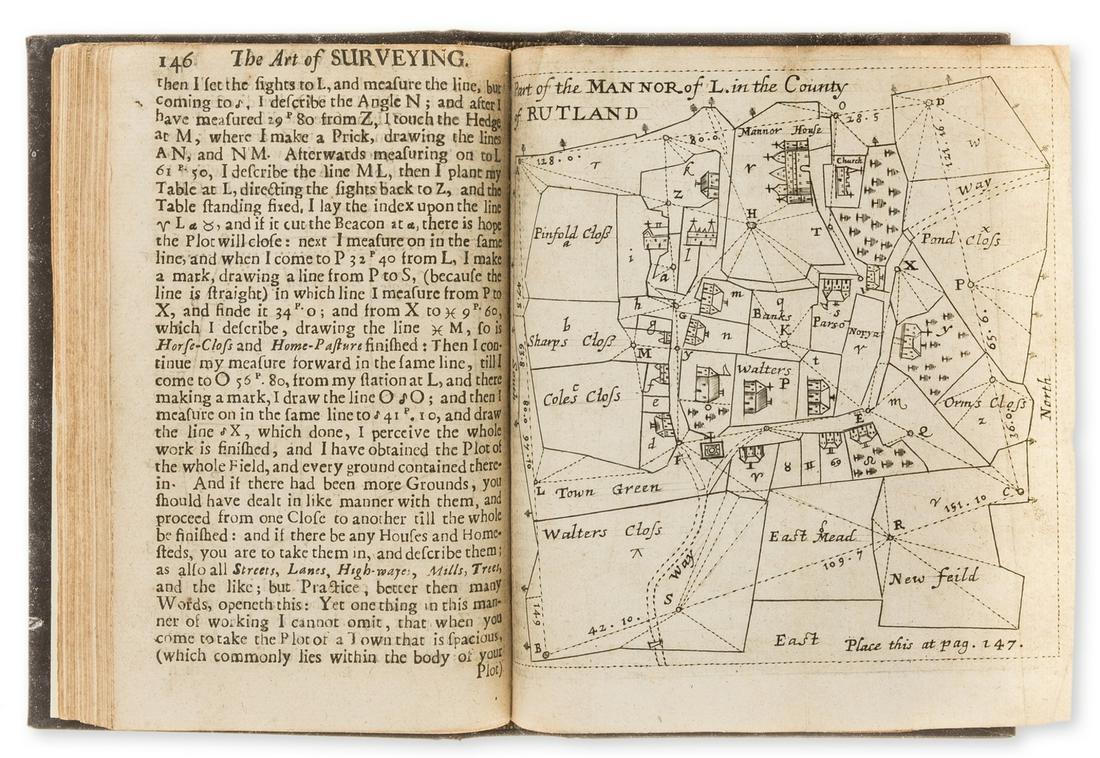 146 The Art of SURVEYING.
then I set the sights to L, and measure the line, but
coming to ♐, I describe the Angle N; and after I
have measured 29 P. 80 from Z, I touch the Hedge
at M, where I make a Prick, drawing the lines
A N, and N M. Afterwards measuring on to L
61 P. 50, I describe the line M L, then I plant my
Table at L, directing the sights back to Z, and the
Table standing fixed, I lay the index upon the line
♈ L a ♉, and if it cut the Beacon at a, there is hope
the Plot will close: next I measure on in the same
line, and when I come to P 32 P. 40 from L, I make
a mark, drawing a line from P to S, (because the
line is straight) in which line I measure from P to
X, and finde it 34 P. 0; and from X to ♓ 9 P. 60,
which I describe, drawing the line ♓ M, so is
Horse-Close and Home-Pasture finished: Then I con-
tinue my measure forward in the same line, till I
come to O 56 P. 80, from my station at L, and there
making a mark, I draw the line O O; and then I
measure on in the same line to 41 P. 10, and draw
the line X, which done, I perceive the whole
work is finished, and I have obtained the Plot of
the whole Field, and every ground contained there-
in. And if there had been more Grounds, you
should have dealt in like manner with them, and
proceed from one Close to another till the whole
be finished: and if there be any Houses and Home-
steds, you are to take them in, and describe them;
as also all Streets, Lanes, High-wayes, Mills, Trees,
and the like; but Practice, better then many
Words, openeth this: Yet one thing in this man-
ner of working I cannot omit, that when you
come to take the Plot of a Town that is spacious,
(which commonly lies within the body of your
Plot)
Part of the MANNOR of L. in the County
of RUTLAND
O 28. 5
D
w
Mannor House
80. 0.
128. 0.
T
Church
k
Z
H
Way
T
Pinfold Closs
a
Pond Closs
x
i
l
a
X
P
h
m
q
s
G
Banks
b
Sharps Closs
g
n
K
Parso
y
M
y
65. 6.
t
Walters
P
Coles Closs
c
e
m
Orms Closs
z
North
36. 0
d
E
Q
F
♈ 8 II 69 ♌
L Town Green
C
♈ 151. 10
Walters Closs
East Mead
R
109. 7
Way
New feild
S
149
42. 10.
B
East
Place this at pag. 147.